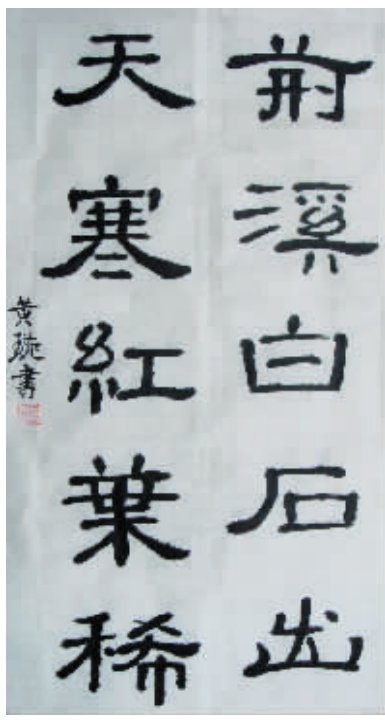 荊溪白石出
天寒紅葉稀
黃琬書